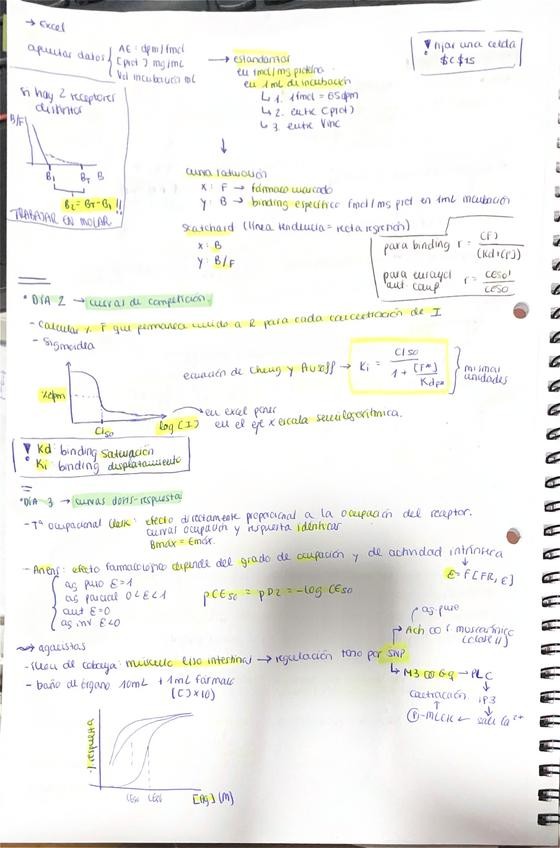 → Excel
apuntar datos
AE: dpm/fmol
[prot] mg/mL
Vol incubación mL
→ estandarizar
en fmol/mg proteína
en 1mL de incubación
↳ 1. 1fmol = 65dpm
↳ 2. entre [prot]
↳ 3. entre Vinc
! Fijar una celda
$C$15
si hay 2 receptores
distintos
B/F
B1 BT B
B2 = BT - B1 !!
TRABAJAR EN MOLAR
↓
curva saturación
x: F → fármaco marcado
y: B → binding específico fmol/mg prot en 1mL incubación
Scatchard (línea tendencia = recta regresión)
x: B
y: B/F
para binding r = [F] / (Kd+[F])
para curva ago/ant. comp r = CE50' / CE50
* DÍA 2 → curvas de competición.
- Calcular % F que permanece unido a R para cada concentración de I
- Sigmoidea
%dpm
CI50
log [I]
→ en excel poner
en el eje x escala semilogarítmica.
ecuación de Cheng y Prusoff → Ki = CI50 / 1 + [F*]/KdF*
mismas
unidades
! Kd: binding saturación
Ki: binding desplazamiento
* DÍA 3 → curvas dosis-respuesta
- Tª ocupacional Clark: efecto directamente proporcional a la ocupación del receptor.
curvas ocupación y respuesta idénticas
Bmax = Emax.
- Ariens: efecto farmacológico depende del grado de ocupación y de actividad intrínseca
ag puro ε=1
ag parcial 0<ε<1
ant ε=0
ag. inv ε<0
pCE50 = pD2 = -log CE50
E = f[FR, ε]
⤳ agonistas
- Íleon de cobaya: músculo liso intestinal → regulación tono por SNP
ag. puro
→ Ach ∞ muscarínico
↳ M3 ∞ Gq → PLC
↓
IP3
↓
sale Ca2+
← (P)-MLCK
↑
contracción
- baño de órgano 10mL + 1mL fármaco
[C]x10)
% respuesta
CE50 CE50
[Ag] (M)